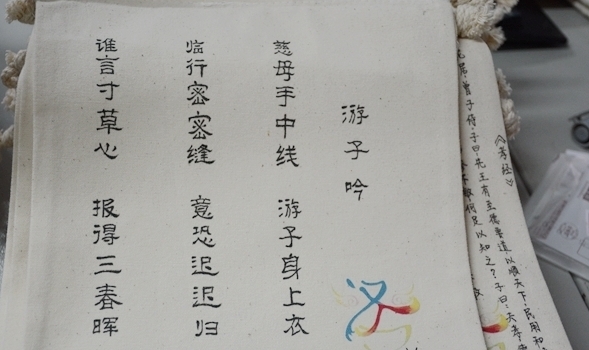 游子吟
慈母手中线 游子身上衣
临行密密缝 意恐迟迟归
谁言寸草心 报得三春晖
《孝经》
居,曾子侍,子曰:先王有至德要道,以顺天下,民用和
何足以知之?子曰:夫孝